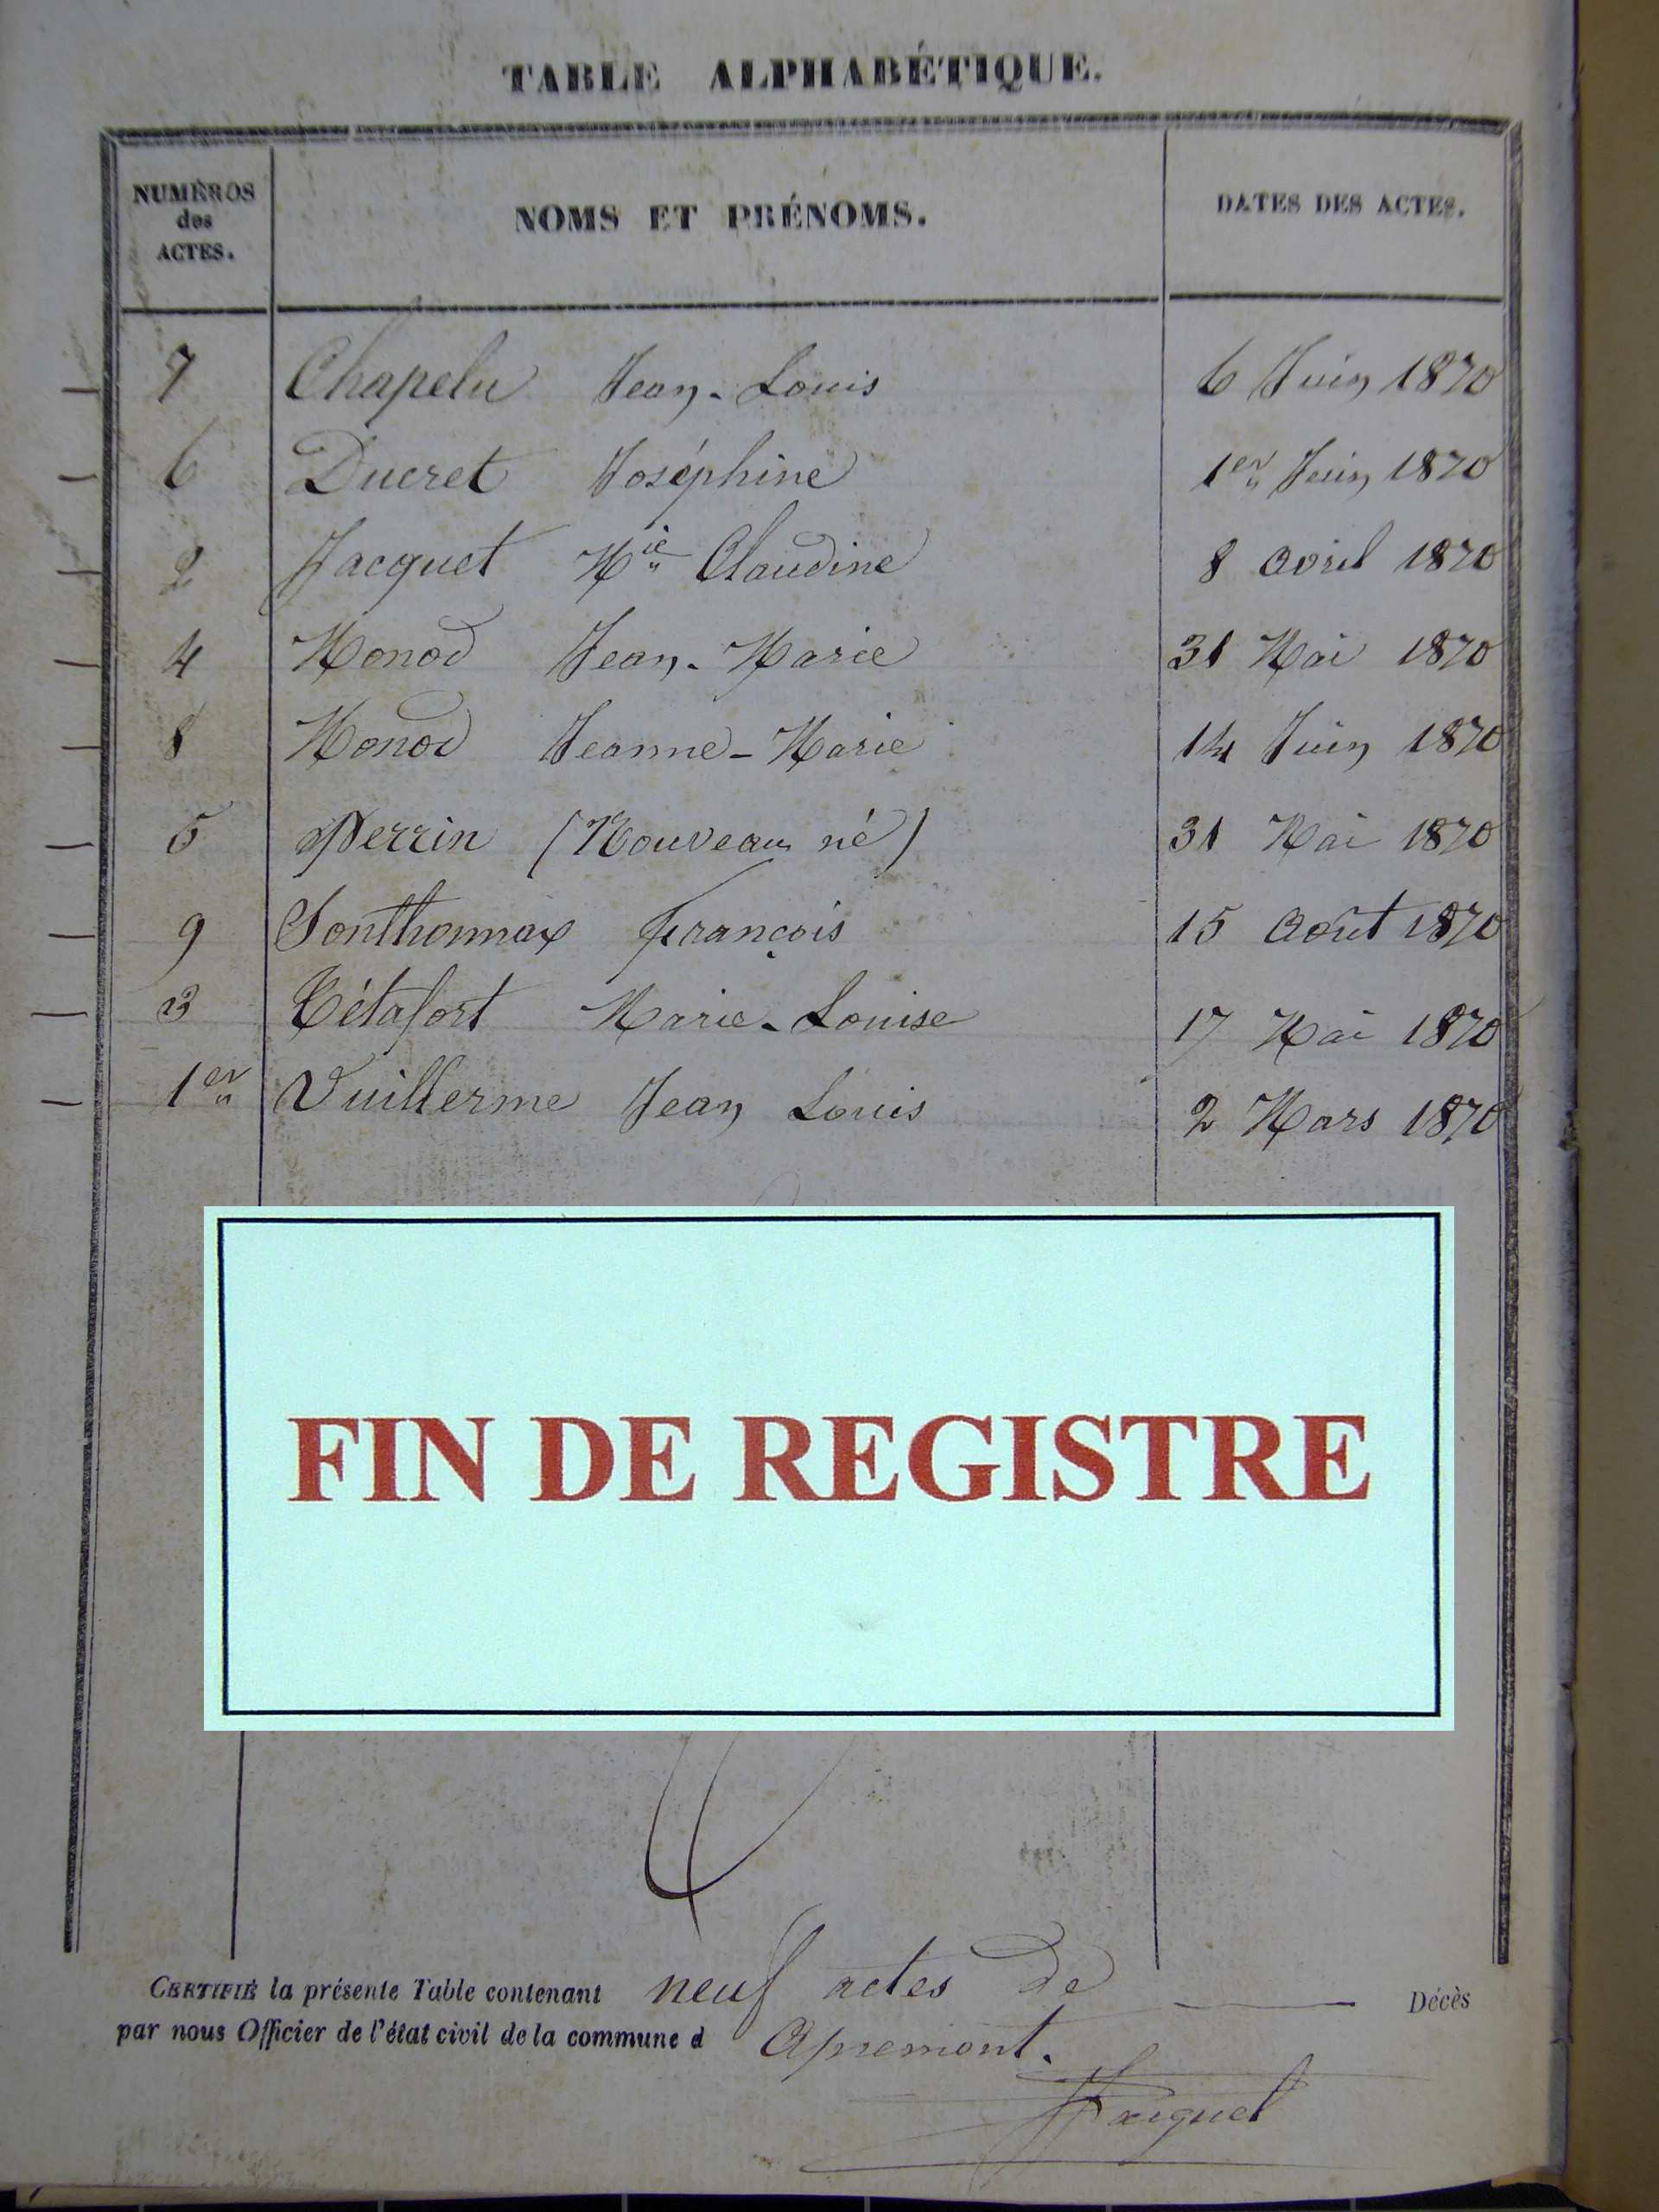 TABLE ALPHABÉTIQUE.
NUMÉROS des ACTES. NOMS ET PRÉNOMS. DATES DES ACTES.
7 Chapelu Jean-Louis 6 Juin 1870
6 Ducret Joséphine 1er Juin 1870
2 Jacquet Mie Claudine 8 avril 1870
4 Monod Jean-Marie 31 Mai 1870
8 Monod Jeanne-Marie 14 Juin 1870
5 Perrin (Nouveau né) 31 Mai 1870
9 Sonthonnax François 15 Août 1870
3 Tétafort Marie-Louise 17 Mai 1870
1er Vuillerme Jean Louis 2 Mars 1870
FIN DE REGISTRE
CERTIFIÉ la présente Table contenant neuf actes de Décès
par nous Officier de l'état civil de la commune d Apremont.